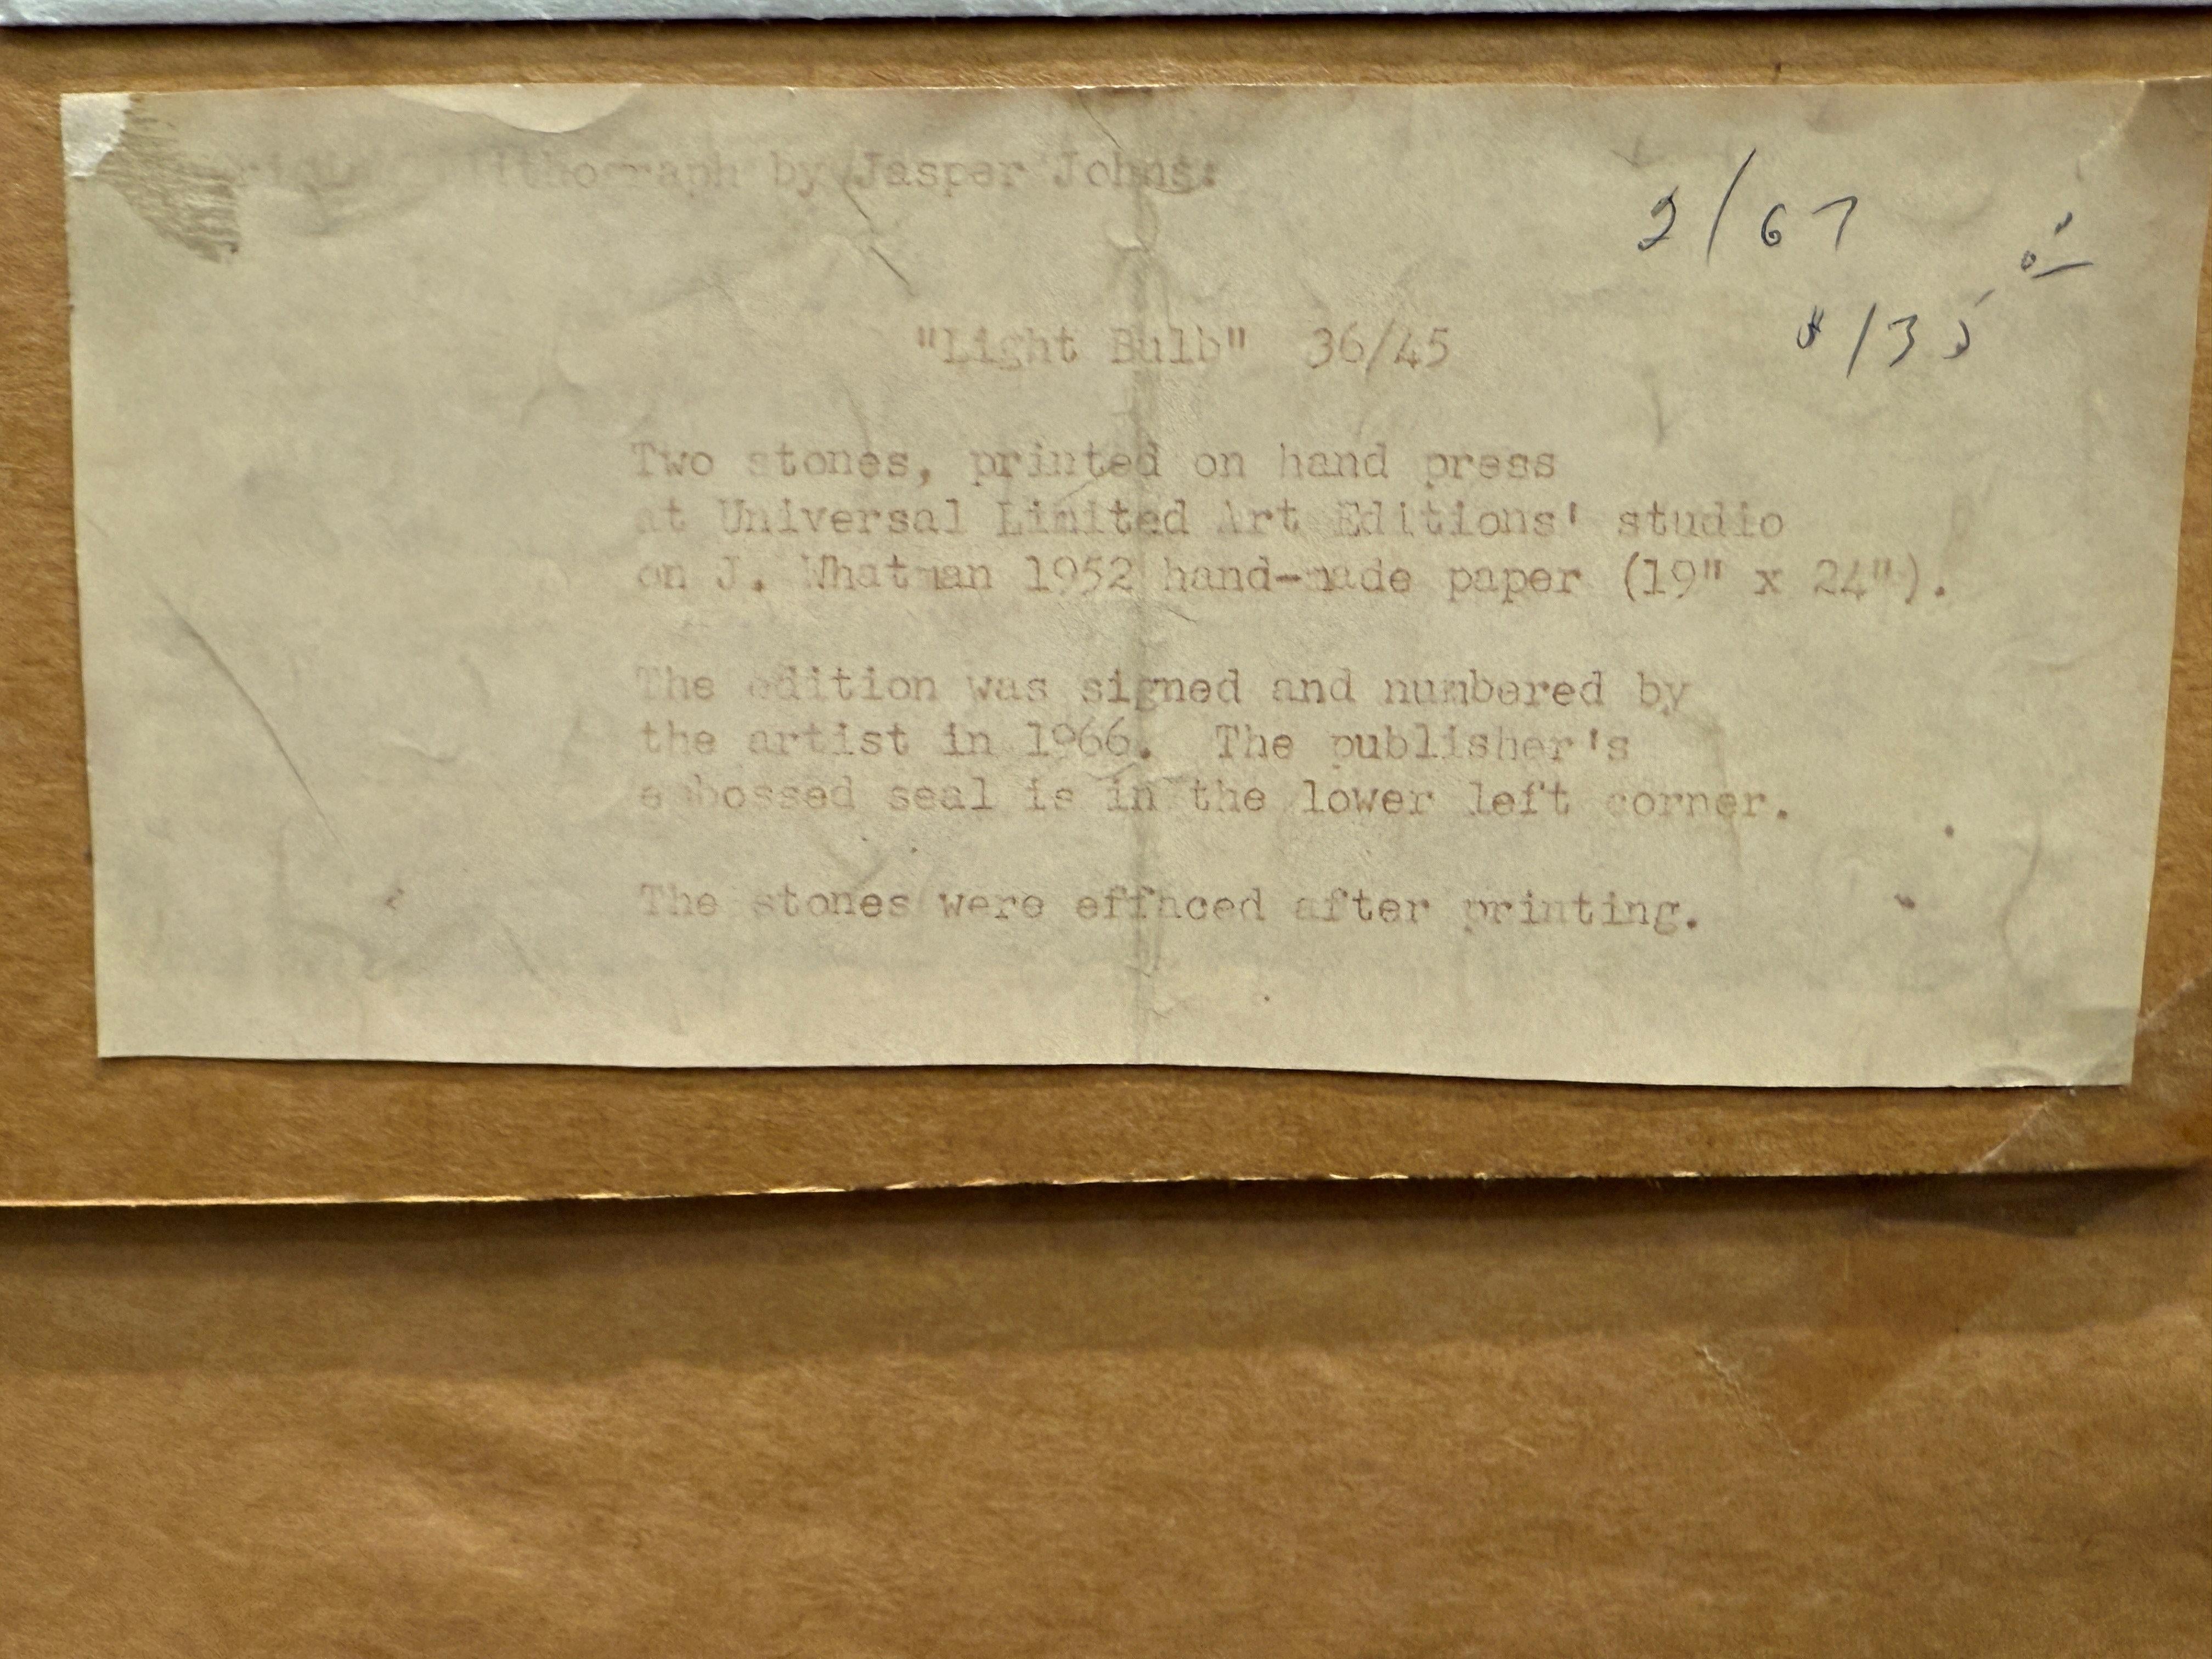 Original lithograph by Jasper Johns:
2/67
$135 00
"Light Bulb" 36/45
Two stones, printed on hand press
at Universal Limited Art Editions' studio
on J. Whatman 1952 hand-made paper (19" x 24").
The edition was signed and numbered by
the artist in 1966. The publisher's
embossed seal is in the lower left corner.
The stones were effaced after printing.